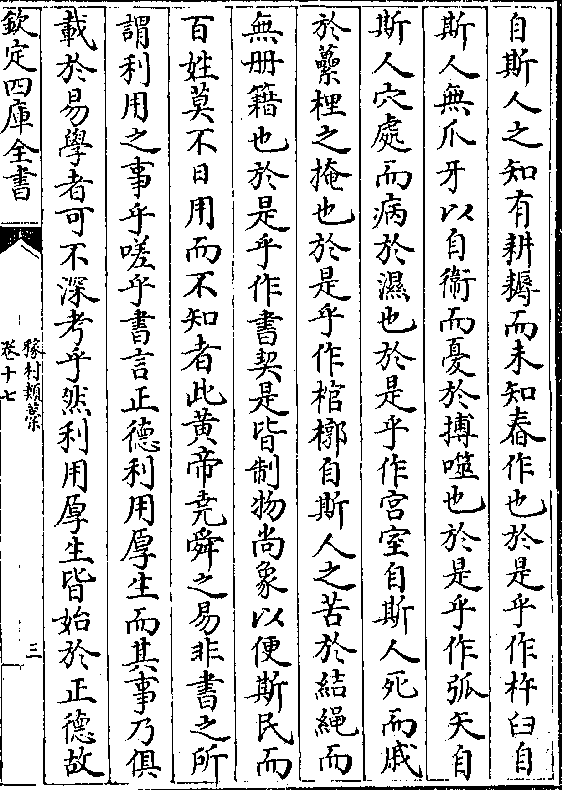 自斯人之知有耕耨而未知舂作也於是乎作杵臼自
斯人無爪牙以自衞而憂於搏噬也於是乎作弧矢自
斯人穴處而病於濕也於是乎作宫室自斯人死而戚
於虆梩之掩也於是乎作棺槨自斯人之苦於結繩而
無册籍也於是乎作書契是皆制物尚象以便斯民而
百姓莫不日用而不知者此黄帝堯舜之易非書之所
謂利用之事乎嗟乎書言正德利用厚生而其事乃俱
載於易學者可不深考乎然利用厚生皆始於正德故
欽定四庫全書
稼村類藁
卷十七
三